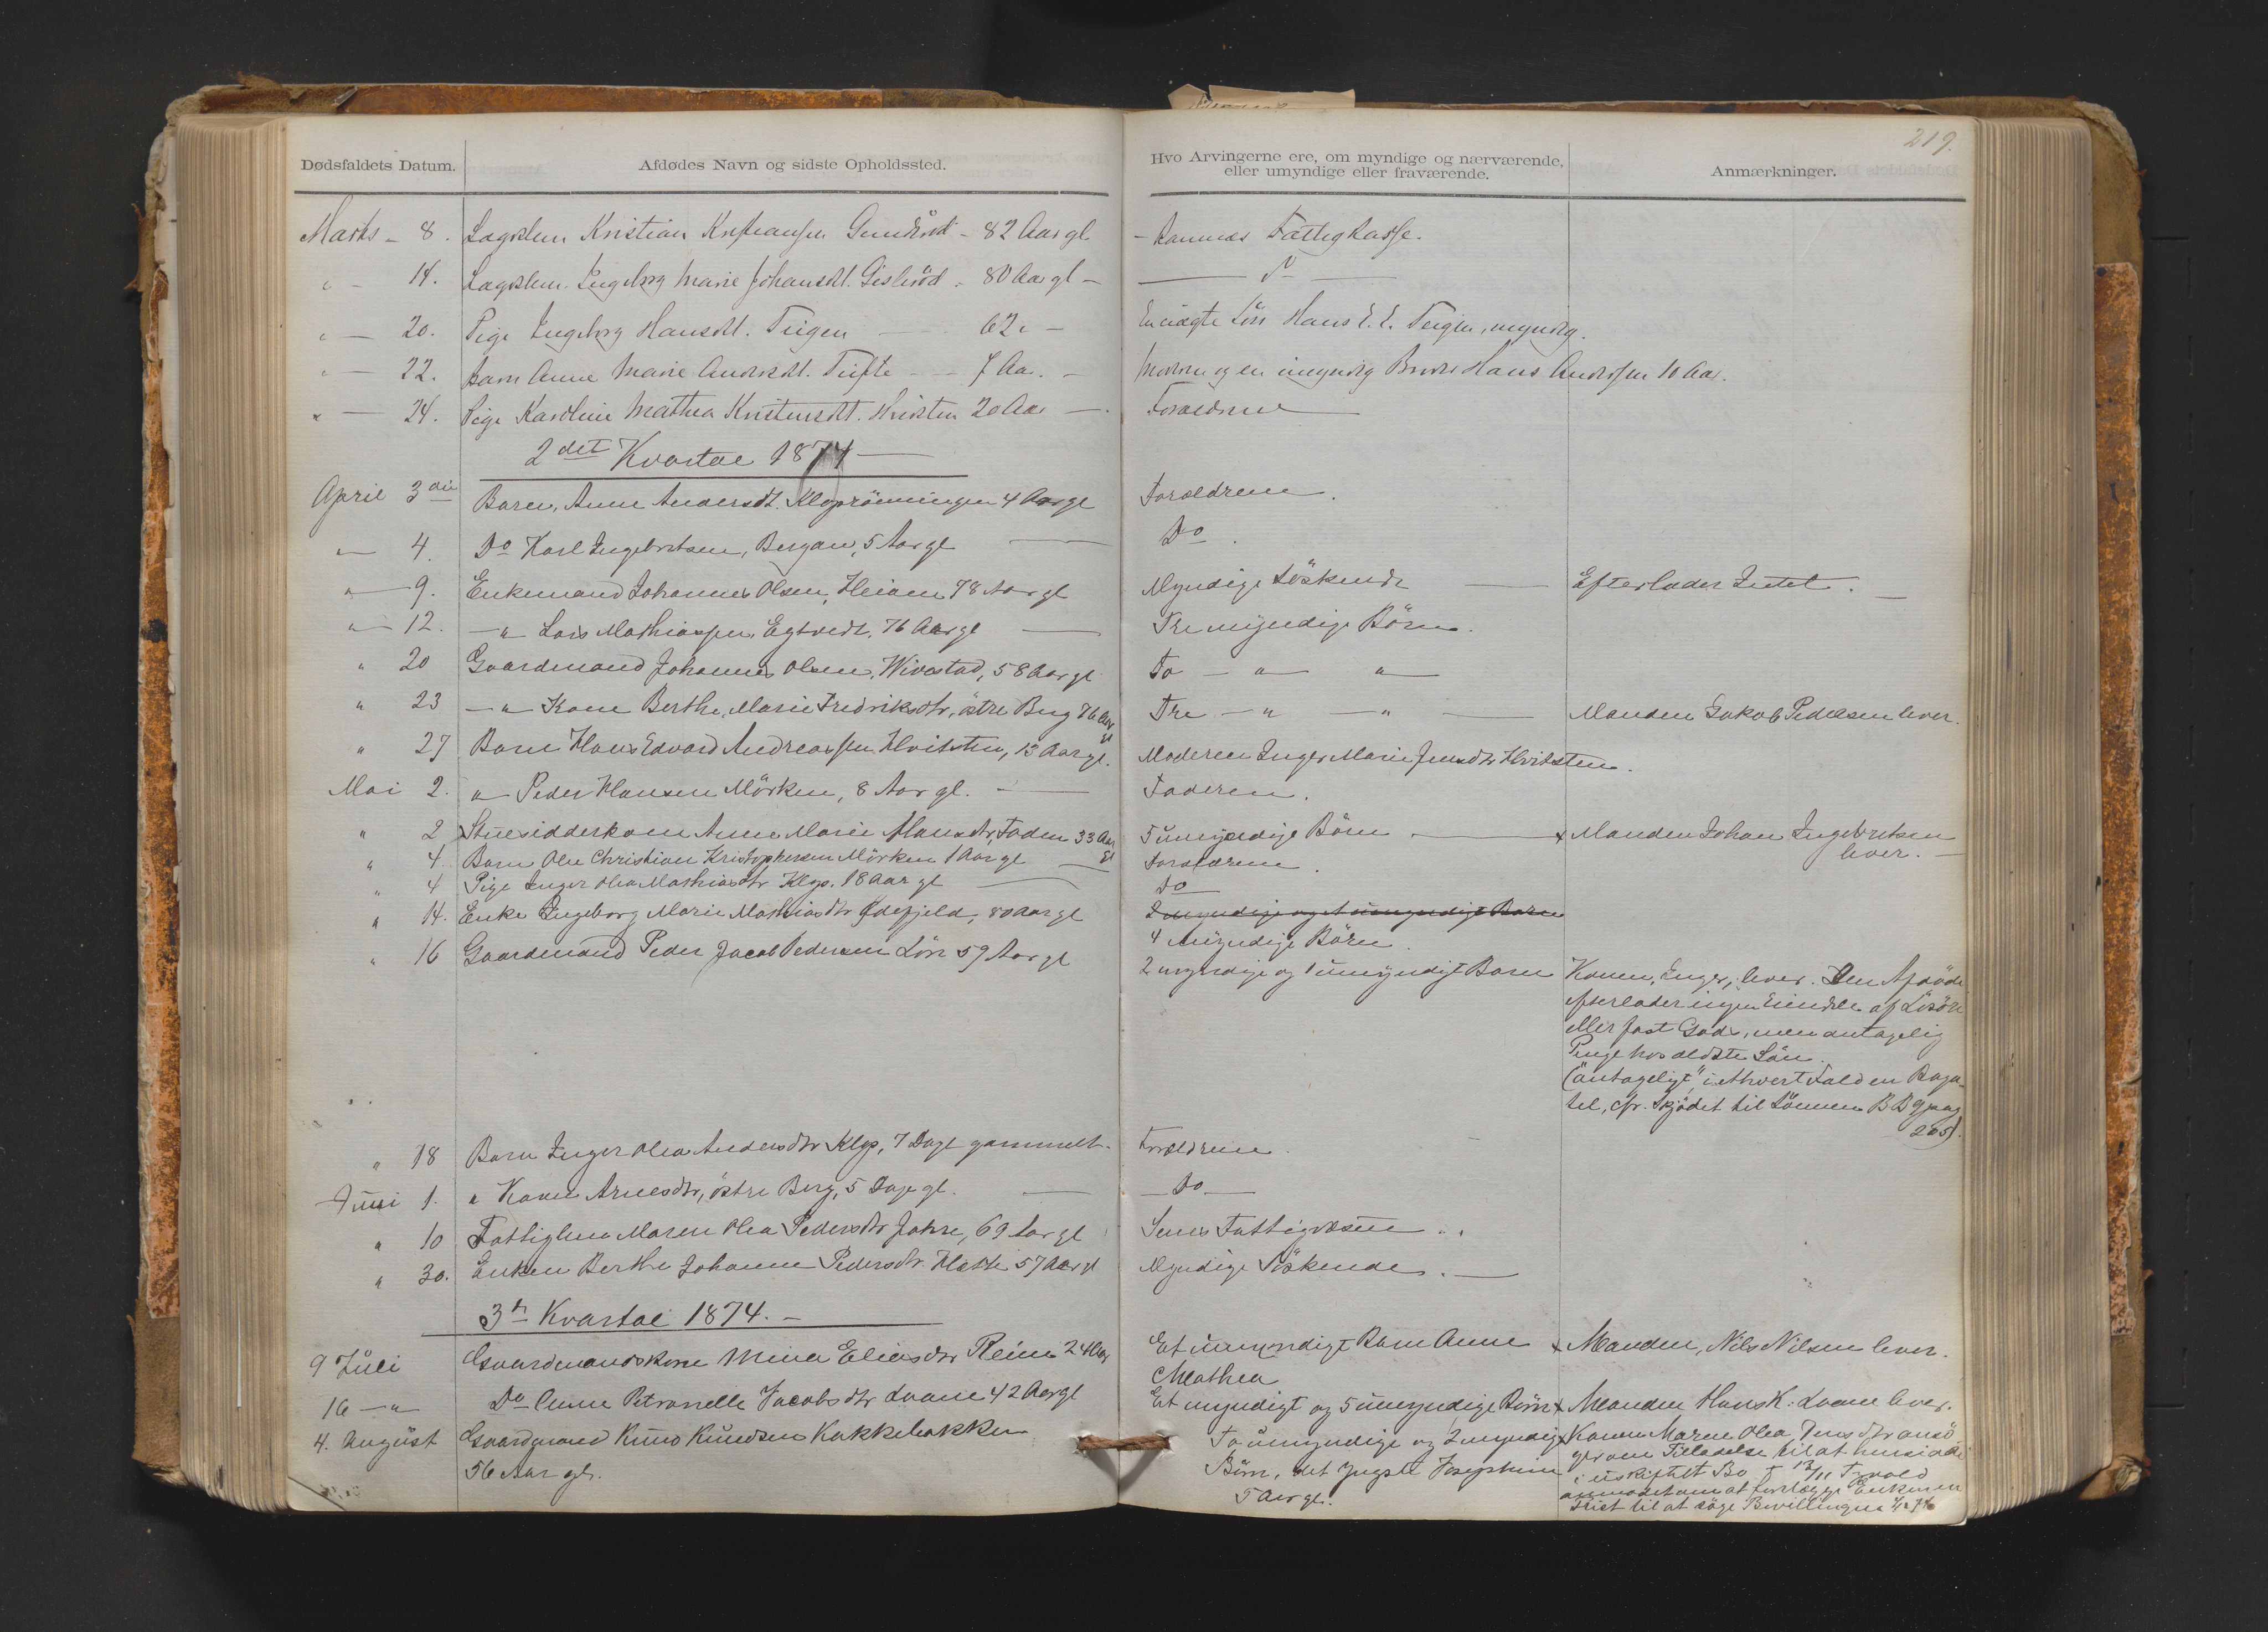 219.
Dødsfaldets Datum. Afdødes Navn og sidste Opholdssted. Hvo Arvingerne ere, om myndige og nærværende, eller umyndige eller fraværende. Anmærkninger.
Marts - 8. Lægdslem Kristian Kristiansen - 82 Aar gl. Fattigkasse.
" - 14. Lægdslem Ingeborg Marie Johansdt. Gislerød - 80 Aar gl - do
" - 20. Pige Ingeborg Hansdt. Teigen - 62 " - En uægte Sön Hans E. E. Teigen, myndig.
" - 22. Barn Anne Marie Andersdt. Tufte - 7 Aar. - Moderen og en umyndig Broder Hans Andersen 10 Aar.
" - 24. Pige Karoline Mathea Kristensdt. Hvitsten 20 Aar - Forældrene
2det Kvartal 1874
April 3die Barn, Anne Andersdt. Kloprönningen 4 Aar gl Forældrene.
" 4. Do Karl Ingebretsen, Bergan, 5 Aar gl Do.
" 9. Enkemand Johannes Olsen, Heiom 78 Aar gl Myndige Söskende Efterlader Intet.
" 12. " Lars Mathiassen, Egtvedt, 76 Aar gl Tre myndige Börn.
" 20 Gaardmand Johannes Olsen, Wivestad, 58 Aar gl To " "
" 23 " Kone Berthe Marie Fredriksdtr, östre Berg 76 Aar gl Tre " " Manden Jakob Pedersen lever.
" 27 Barn Hans Edvard Andreassen Hvitsten, 13 Aar gl. Moderen Inger Marie Jensdtr Hvitsten.
Mai 2. " Peder Hansen Mörken, 8 Aar gl. Faderen.
" 2 Stuesidderkone Anne Marie Hansdtr, Foden 33 Aar gl 5 umyndige Börn x Manden Johan Ingebretsen lever.
" 4. Barn Ole Christian Kristophersen Mörken 1 Aar gl Forældrene.
" 4 Pige Inger Olea Mathiasdtr Klop. 18 Aar gl Do
" 14. Enke Ingeborg Marie Mathiasdtr, 80 Aar gl 2 myndige og et umyndigt Barn
4 myndige Börn.
" 16 Gaardmand Peder Jacob Pedersen Lön 59 Aar gl 2 myndige og 1 umyndigt Barn Konen, Inger, lever. Den Afdöde
efterlader ingen Eiendele af Lösöre
eller fast Gods, men antagelig
Penge hos ældste Sön.
("antageligt" i ethvert Fald en Baga-
tel, cfr. Skjödet til Sönnen B B 9 pag
205).
" 18 Barn Inger Olea Andersdtr Klop, 7 Dage gammelt. Forældrene.
Juni 1. " Karen Arnesdtr, östre Berg, 5 Dage gl. Do
" 10 Fattiglem Maren Olea Pedersdtr Jahre, 69 Aar gl Fattigvæsen
" 30. Enken Berthe Johanne Pedersdtr 57 Aar gl Myndige Söskende.
3die Kvartal 1874.
9 Juli Gaardmandskone Mina Eliasdtr Reine 24 Aar Et umyndigt Barn Anne Mathea x Manden, Nils Nilsen lever.
16 " Do Anne Petronelle Jacobsdtr Loane 42 Aar gl Et myndigt og 5 umyndige Börn x Manden Hans K. Loane lever.
4. August Gaardmand Knud Knudsen Kakkebakken
56 Aar gl. To umyndige og 2 myndige
Börn, det yngste Josephine
5 Aar gl. x Konen Maren Olea Jensdtr ansö-
ger om Tilladelse til at hensidde
i uskiftet Bo 12/11
anmodet om at forelægge Enken en
Frist til at söge Bevillingen